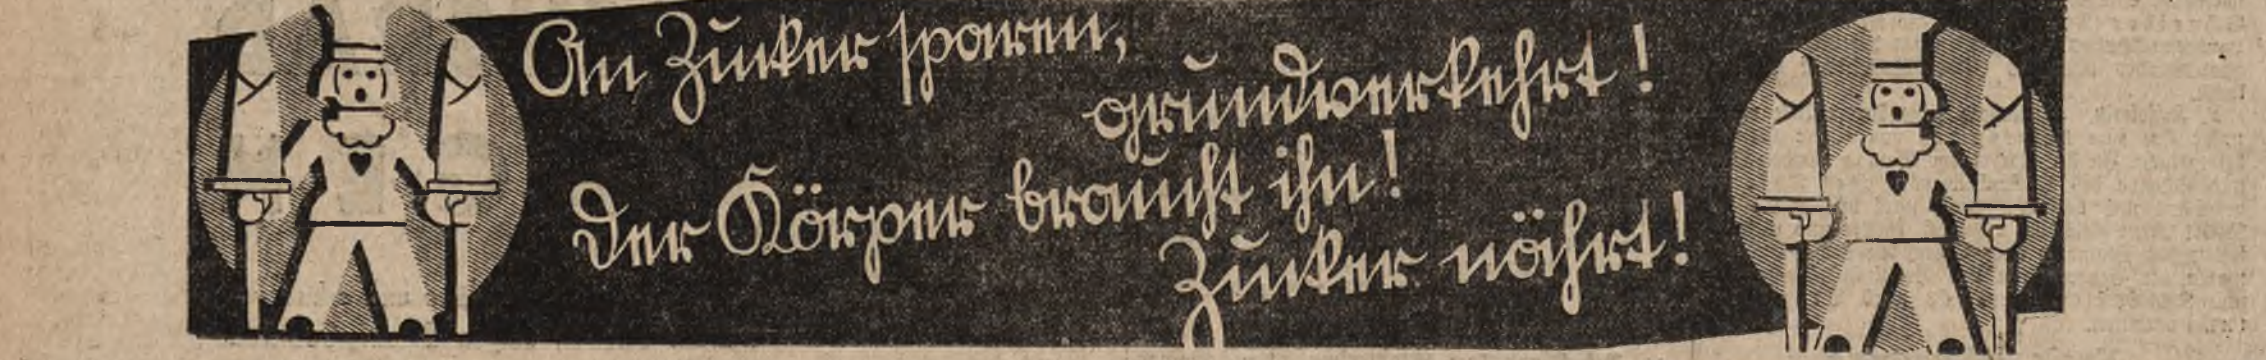 An Zucker sparen,
grundverkehrt!
Der Körper braucht ihn!
Zucker nährt!